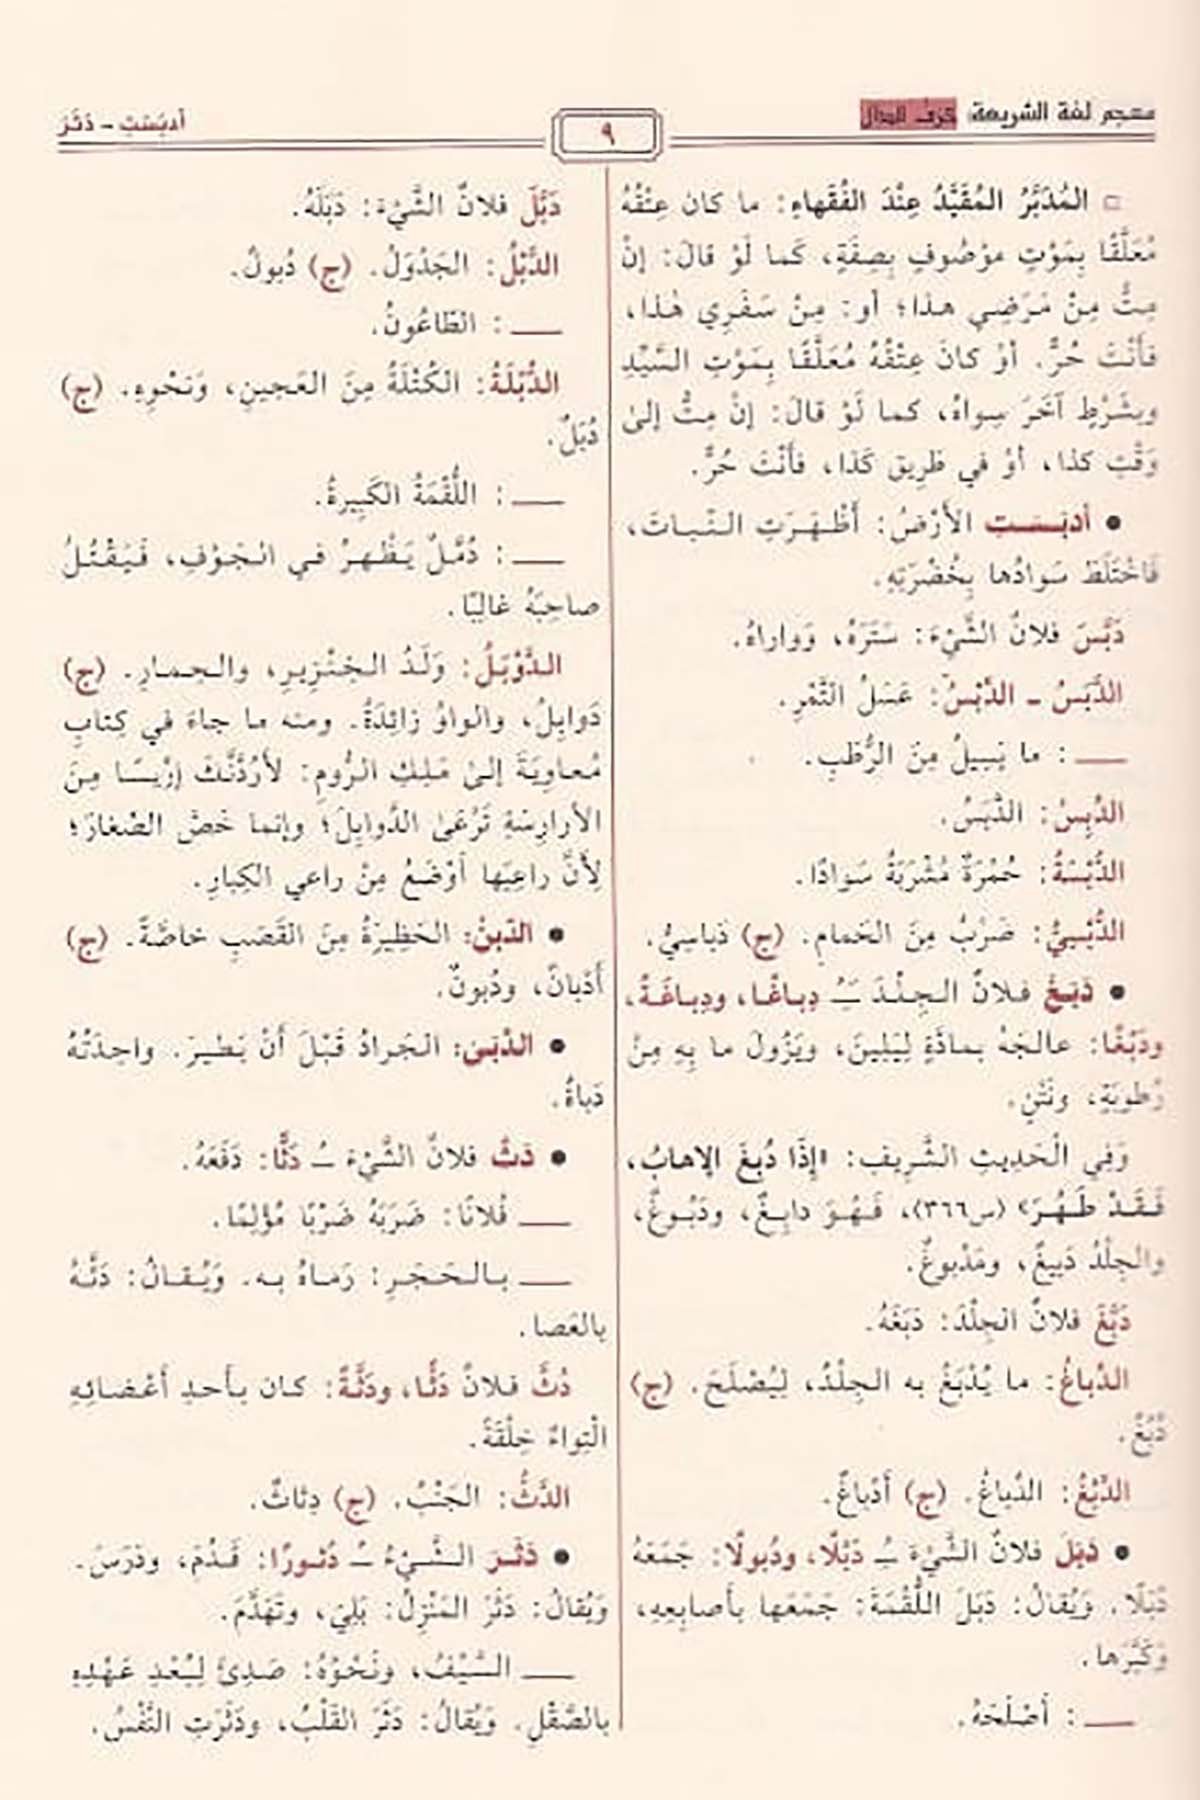 معجم لغة الشريعة: حَرْفُ الدال
٩
أدبَسَتِ - دَثَرَ
□ المُدَبَّرُ المُقَيَّدُ عِنْدَ الفُقَهاءِ: ما كان عِتْقُهُ
مُعَلَّقًا بِمَوْتٍ مَوْصُوفٍ بِصِفَةٍ، كَما لَوْ قالَ: إنْ
مِتُّ مِنْ مَرَضِي هذا؛ أو: مِنْ سَفَرِي هٰذا،
فأَنْتَ حُرٌّ. أوْ كانَ عِتْقُهُ مُعَلَّقًا بِمَوْتِ السَّيِّدِ
وبشَرْطٍ آخَرَ سِواهُ، كما لَوْ قالَ: إنْ مِتُّ إلىٰ
وَقْتِ كذا، أوْ في طَرِيقِ كَذا، فأَنْتَ حُرٌّ.
● أدبَسَتِ الأَرْضُ: أَظْهَرَتِ النَّباتَ،
فَاخْتَلَطَ سَوادُها بِخُضْرَتِهِ.
دَبَّسَ فلانٌ الشَّيْءَ: سَتَرَهُ، وَواراهُ.
الدَّبْسُ - الدِّبْسُ: عَسَلُ التَّمْرِ.
ــــ : ما يَسِيلُ مِنَ الرُّطَبِ.
الدِّبِسُ: الدِّبْسُ.
الدُّبْسَةُ: حُمْرَةٌ مُشْرَبَةٌ سَوادًا.
الدُّبْسِيُّ: ضَرْبٌ مِنَ الحَمامِ. (ج) دَباسِيُّ.
● دَبَغَ فلانٌ الجِلْدَ ــُ دِباغًا، ودِباغَةً،
ودَبْغًا: عالجَهُ بمادَّةٍ لِيَلِينَ، ويَزُولَ ما بِهِ مِنْ
رُطوبَةٍ، ونَتْنٍ.
وَفِي الْحَدِيثِ الشَّرِيفِ: «إِذَا دُبِغَ الإهابُ،
فَقَدْ طَهُرَ» (س٣٦٦)، فَهُوَ دابِغٌ، ودَبُوغٌ،
والجِلْدُ دَبِيغٌ، ومَدْبوغٌ.
دَبَّغَ فلانٌ الجِلْدَ: دَبَغَهُ.
الدِّباغُ: ما يُدْبَغُ به الجِلْدُ، لِيُصْلَحَ. (ج)
دُبُغٌ.
الدِّبْغُ: الدِّباغُ. (ج) أَدْباغٌ.
● دَبَلَ فلانٌ الشَّيْءَ ــُ دَبْلًا، ودُبولًا: جَمَعَهُ
دَبْلًا. وَيُقالُ: دَبَلَ اللُّقْمَةَ: جَمَعَها بأَصابِعِهِ،
وَكَبَّرَها.
ــــ : أَصْلَحَهُ.
دَبَّلَ فلانٌ الشَّيْءَ: دَبَلَهُ.
الدَّبْلُ: الجَدْوَلُ. (ج) دُبولٌ.
ــــ : الطّاعُونُ.
الدُّبْلَةُ: الكُتْلَةُ مِنَ العَجينِ، وَنَحْوِهِ. (ج)
دُبَلٌ.
ــــ : اللُّقْمَةُ الكَبِيرةُ.
ــــ : دُمَّلٌ يَظْهرُ في الجَوْفِ، فَيَقْتُلُ
صاحِبَهُ غالِبًا.
الدَّوْبَلُ: وَلَدُ الخِنْزِيرِ، والحِمارِ. (ج)
دَوابِلُ، والواوُ زائِدَةٌ. ومنه ما جاءَ في كِتابِ
مُعاوِيَةَ إلىٰ مَلِكِ الرُّومِ: لأَرُدَّنَّكَ إرِّيسًا مِنَ
الأرارِسَةِ تَرْعَىٰ الدَّوابِلَ؛ وإنما خَصَّ الصِّغارَ؛
لأَنَّ راعِيَها أوْضَعُ مِنْ راعي الكِبارِ.
● الدِّبْنُ: الحَظِيرَةُ مِنَ القَصَبِ خاصَّةً. (ج)
أَدْبانٌ، ودُبونٌ.
● الدَّبىٰ: الجَرادُ قَبْلَ أَنْ يَطيرَ. واحِدَتُهُ
دَباةٌ.
● دَثَّ فلانٌ الشَّيْءَ ــُ دَثًّا: دَفَعَهُ.
ــــ فُلانًا: ضَرَبَهُ ضَرْبًا مُؤْلِمًا.
ــــ بِالحَجَرِ: رَماهُ به. وَيُقالُ: دَثَّهُ
بالعَصا.
دُثَّ فلانٌ دَثًّا، ودَثَّةً: كان بأحدِ أعْضائِهِ
الْتِواءٌ خِلْقَةً.
الدَّثُّ: الجَنْبُ. (ج) دِثاثٌ.
● دَثَرَ الشَّيْءُ ــُ دُثورًا: قَدُمَ، ودَرَسَ.
وَيُقالُ: دَثَرَ المَنْزِلُ: بَلِيَ، وتَهَدَّمَ.
ــــ السَّيْفُ، ونَحْوُهُ: صَدِئَ لِبُعْدِ عَهْدِهِ
بالصَّقْلِ. وَيُقالُ: دَثَرَ القَلْبُ، ودَثَرَتِ النَّفْسُ.